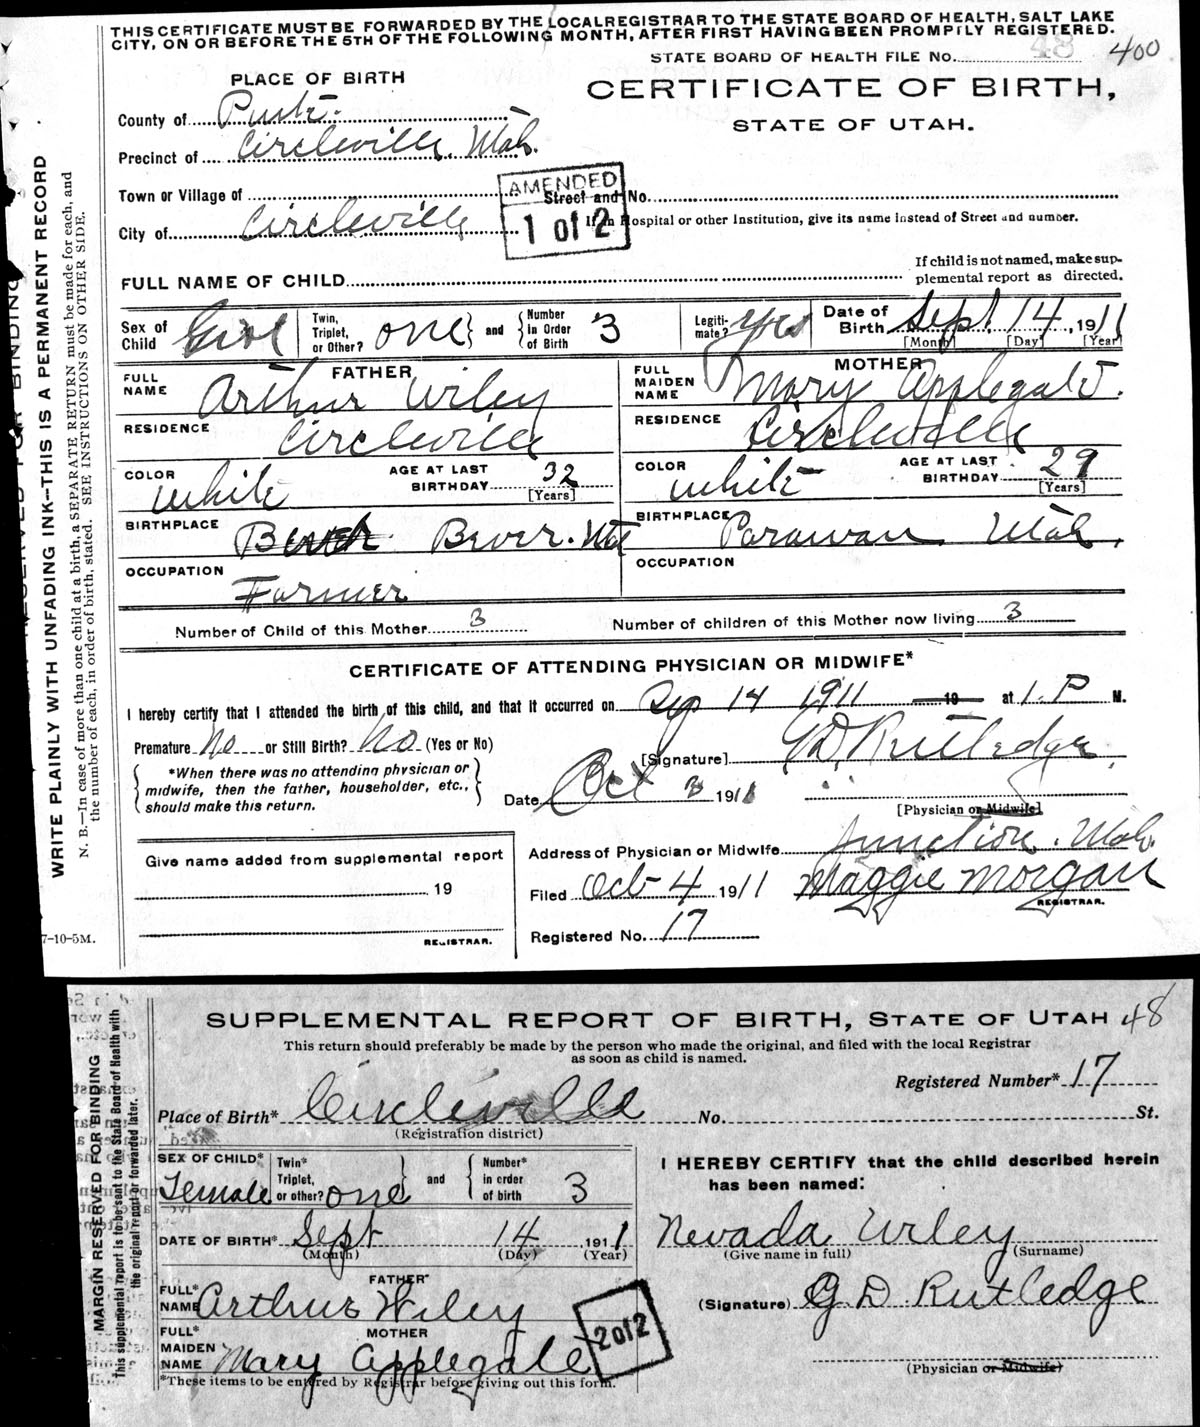 THIS CERTIFICATE MUST BE FORWARDED BY THE LOCAL REGISTRAR TO THE STATE BOARD OF HEALTH, SALT LAKE
CITY, ON OR BEFORE THE 5TH OF THE FOLLOWING MONTH, AFTER FIRST HAVING BEEN PROMPTLY REGISTERED.
STATE BOARD OF HEALTH FILE No. 48 400
PLACE OF BIRTH
CERTIFICATE OF BIRTH,
STATE OF UTAH.
County of Piute
Precinct of Circleville, Utah.
Town or Village of
Street and No.
AMENDED
1 of 2
City of Circleville
In Hospital or other Institution, give its name instead of Street and number.
FULL NAME OF CHILD
If child is not named, make sup-
plemental report as directed.
Sex of Child Girl
Twin, Triplet, or Other? one and Number in Order of Birth 3
Legiti-mate? yes
Date of Birth Sept. 14, 1911
[Month] [Day] [Year]
FATHER
MOTHER
FULL NAME Arthur Wiley
FULL MAIDEN NAME Mary Applegate.
RESIDENCE Circleville
RESIDENCE Circleville
COLOR White AGE AT LAST BIRTHDAY 32 [Years]
COLOR White AGE AT LAST BIRTHDAY 29 [Years]
BIRTHPLACE Bever. Ut
BIRTHPLACE Parawan Utah.
OCCUPATION Farmer
OCCUPATION
Number of Child of this Mother 3
Number of children of this Mother now living 3
CERTIFICATE OF ATTENDING PHYSICIAN OR MIDWIFE*
I hereby certify that I attended the birth of this child, and that it occurred on Sep 14 1911 19 at 1. P M.
Premature No or Still Birth? No (Yes or No)
[Signature] G D. Rutledge
*When there was no attending physician or
midwife, then the father, householder, etc.,
should make this return.
Date Oct 3 1911
[Physician or Midwife]
Give name added from supplemental report
19
REGISTRAR.
Address of Physician or Midwife Junction. Utah.
Filed Oct 4 1911 Maggie Morgan
REGISTRAR.
Registered No. 17
7-10-5M.
WRITE PLAINLY WITH UNFADING INK—THIS IS A PERMANENT RECORD
N. B.—In case of more than one child at a birth, a SEPARATE RETURN must be made for each, and
the number of each, in order of birth, stated. SEE INSTRUCTIONS ON OTHER SIDE.
SUPPLEMENTAL REPORT OF BIRTH, STATE OF UTAH 48
This return should preferably be made by the person who made the original, and filed with the local Registrar
as soon as child is named.
Registered Number* 17
Place of Birth* Circleville No. St.
(Registration district)
SEX OF CHILD* Female
Twin* Triplet, or other? one and Number* in order of birth 3
I HEREBY CERTIFY that the child described herein
has been named:
DATE OF BIRTH* Sept 14 1911
(Month) (Day) (Year)
Nevada Wiley
(Give name in full) (Surname)
FATHER*
FULL* NAME Arthur Wiley
(Signature) G. D Rutledge
MOTHER
FULL* MAIDEN NAME Mary Applegate
2 of 2
(Physician or Midwife)
*These items to be entered by Registrar before giving out this form.
MARGIN RESERVED FOR BINDING
This supplemental report is to be sent to the State Board of Health with
the original report or forwarded later.